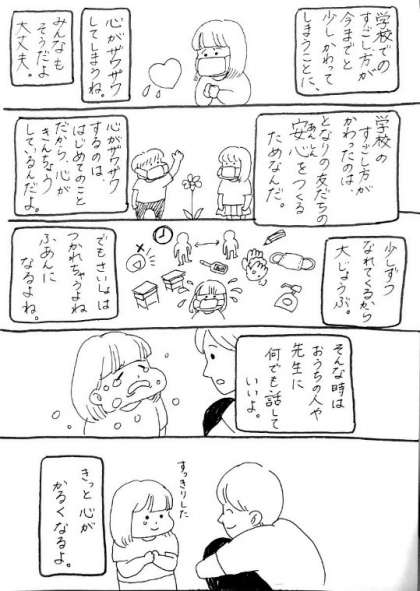 学校での
すごし方が
今までと
少しかわって
しまうことに、
心がザワザワ
してしまうね。
みんなも
そうだよ
大丈夫。
学校の
すごし方が
かわったのは、
となりの友だちの
安心をつくる
あんしん
ためなんだ。
心がザワザワ
するのは、
はじめてのこと
だから、心が
きんちょう
しているんだよ。
少しずつ
なれてくるから
大じょうぶ。
でもさいしょは
つかれちゃうよね
ふあんに
なるよね。
そんな時は
おうちの人や
先生に
何でも話して
いいよ。
すっきりした
きっと心が
かるくなるよ。